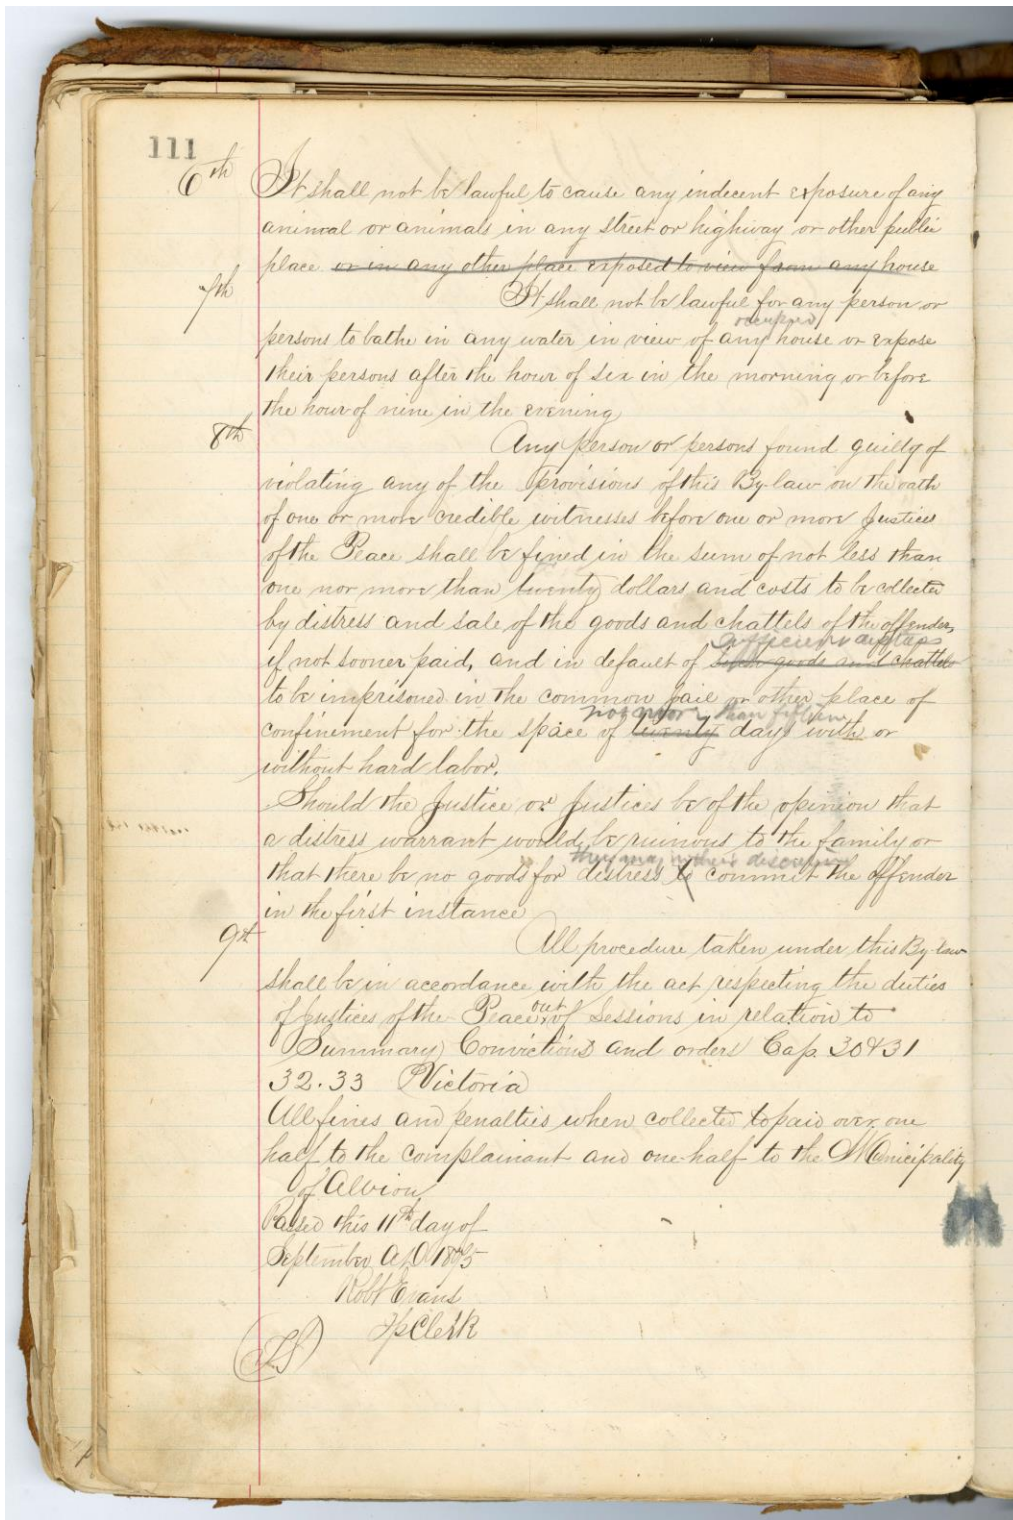 111
6th It shall not be lawful to cause any indecent exposure of any
animal or animals in any street or highway or other public
place or in any other place exposed to view from any house
7th It shall not be lawful for any person or
occupied
persons to bathe in any water in view of any house or expose
their persons after the hour of six in the morning or before
the hour of nine in the evening
8th Any person or persons found guilty of
violating any of the provisions of this By-law on the oath
of one or more credible witnesses before one or more Justices
of the Peace shall be fined in the sum of not less than
one nor more than twenty dollars and costs to be collected
by distress and sale of the goods and chattels of the offender,
sufficient distress
if not sooner paid, and in default of such goods and chattels
to be imprisoned in the common jail or other place of
not more than fifteen
confinement for the space of twenty days with or
without hard labor.
Should the Justice or Justices be of the opinion that
a distress warrant would be ruinous to the family or
they may in their discretion
that there be no goods for distress to commit the offender
in the first instance
9th All procedure taken under this By-law
shall be in accordance with the act respecting the duties
out
of Justices of the Peace of Sessions in relation to
Summary Convictions and orders Cap. 30 & 31
32.33 Victoria
All fines and penalties when collected to paid over one
half to the complainant and one-half to the Municipality
of Albion
Passed this 11th day of
September A.D. 1875
Robt Evans
Tp Clerk
(LS)